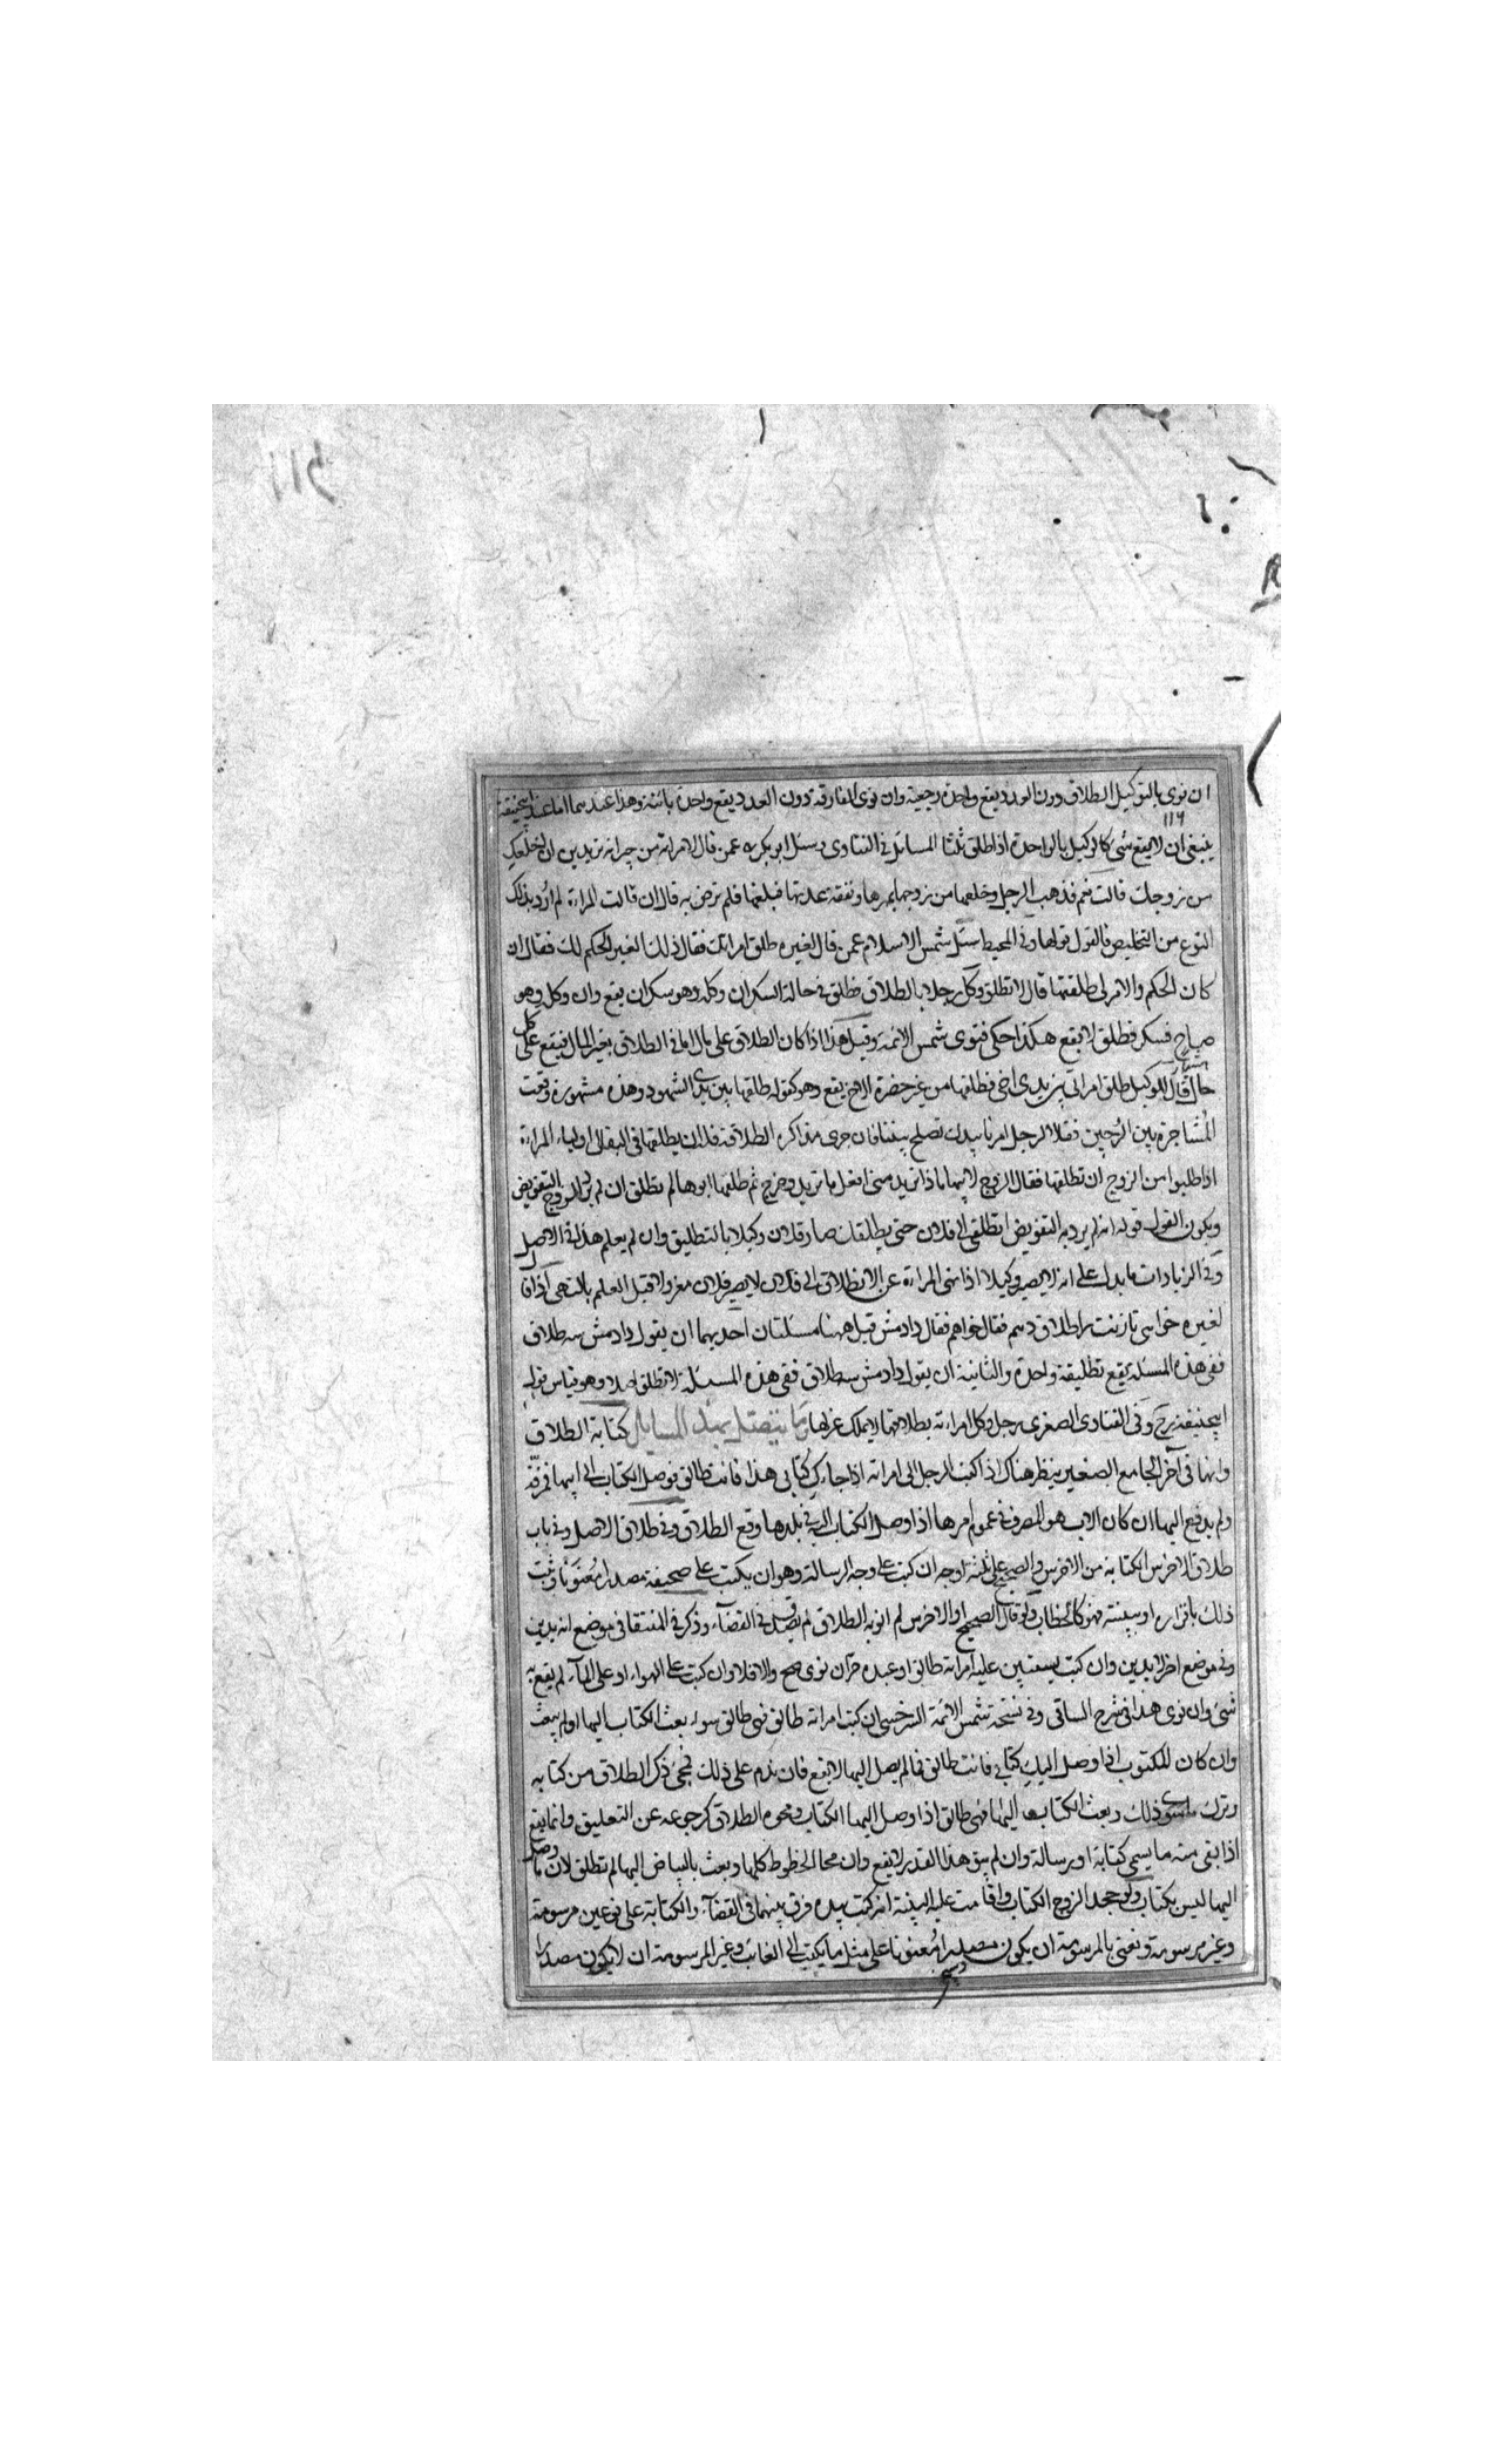 ان نوى بالتوكيل الطلاق دون العدد يقع واحدة رجعية وان نوى المفارقة دون العدد يقع واحدة بائنة وهذا عندهما اما عند ابيحنيفة
١١٦
ينبغي ان لا يقع شئ كالوكيل بالواحدة اذا طلق ثلثا المسائل في الفتاوى وسئل ابو بكر عمن قال لامراته من جيرانه تريدين ان اخلعك
من زوجك قالت نعم فذهب الرجل وخلعها من زوجها بمهرها ونفقة عدتها فبلغها فلم ترض به قال ان قالت المراة لم ارد بذلك
النوع من التخليص فالقول قولها وفي المحيط سئل شمس الاسلام عمن قال لغيره طلق امراتك فقال ذلك الغير الحكم لك فقال ان
كان الحكم والامر لي طلقتها قال لا تطلق وكل رجلا بالطلاق فطلق في حالة السكر ان وكله وهو سكران يقع وان وكل وهو
صاح فسكر فطلق لا يقع هكذا حكى فتوى شمس الائمة وقيل هذا اذا كان الطلاق على مال اما في الطلاق بغير المال فيقع على كل
حال قال للوكيل طلق امراتي بين يدى اخى فطلقها من غير حضرة الاخ يقع وهو كقوله طلقها بين يدى الشهود وهذه مشهورة وقعت
المشاجرة بين الزوجين فقال الرجل
اذا طلبوا من الزوج ان تطلقها فقال الزوج لابيها ماذا تريد منى افعل ما تريد وخرج ثم طلقها ابوها لم تطلق ان لم يرد الزوج التفويض
ويكون القول قوله انه لم يرد به التفويض انطلقى الى فلان حتى يطلقك صار فلان وكيلا بالتطليق وان لم يعلم هذا في الاصل
وفي الزيادات ما يدل على انه لا يصير وكيلا اذا نهى المراة عن الانطلاق الى فلان لا يصير فلان معزولا قبل العلم بالنهى اذا قال
لغيره خواهى تا زنت را طلاق دهم فقال خواهم فقال دادمش قيل ههنا مسئلتان احديهما ان يقول دادمش سه طلاق
ففي هذه المسئلة يقع تطليقة واحدة والثانية ان يقول دادمش سه طلاق ففى هذه المسئلة لا تطلق اصلا وهو قياس قول
ابيحنيفة رح وفي الفتاوى الصغرى رجل وكل امراته بطلاقها لا يملك عزلها وما يتصل بهذه المسايل كتابة الطلاق
وانها في آخر الجامع الصغير ينظر هناك اذا كتب الرجل الى امراته اذا جاءك كتابى هذا فانت طالق فوصل الكتاب الى ابيها فمزقه
ولم يدفع اليها ان كان الاب هو المتصرف في عموم امرها اذا وصل الكتاب اليه في بلدها وقع الطلاق وفي طلاق الاصل وفي باب
طلاق الاخرس الكتابة من الاخرس والصحيح على ثلثة اوجه ان كتب على وجه الرسالة وهو ان يكتب على صحيفة مصدرا معنونا وثبت
ذلك باقراره او ببينة فهو كالخطاب ولو قال الصحيح او الاخرس لم انو به الطلاق لم يصدق في القضآء وذكر في المنتقا في موضع انه يدين
وفي موضع اخر لا يدين وان كتب يستبين عليه امراته طالق او عبده حر ان نوى صح والا فلا وان كتب على الهواء او على المآء لم يقع به
شئ وان نوى هذا في شرح الساقى وفي نسخة شمس الائمة السرخسى ان كتب امراته طالق فهى طالق سواء بعث الكتاب اليها او لم يبعث
وان كان المكتوب اذا وصل اليك كتابي فانت طالق فما لم يصل اليها لا يقع فان ندم على ذلك فمحى ذكر الطلاق من كتابه
وترك ما سوى ذلك وبعث الكتاب اليها فهى طالق اذا وصل اليها الكتاب ومحوه الطلاق كرجوعه عن التعليق وانما يقع
اذا بقى منه ما يسمى كتابة او رسالة وان لم يبق هذا القدر لا يقع وان محا الخطوط كلها وبعث بالبياض اليها لم تطلق لان ما وصل
اليها ليس بكتاب ولو جحد الزوج الكتاب واقامت عليه البينة انه كتب بيده فرق بينهما في القضآء والكتابة على نوعين مرسومة
وغير مرسومة ونعنى بالمرسومة ان يكون مصدرا معنونا على مثل ما يكتب الى الغائب وغير المرسومة ان لا يكون مصدرا